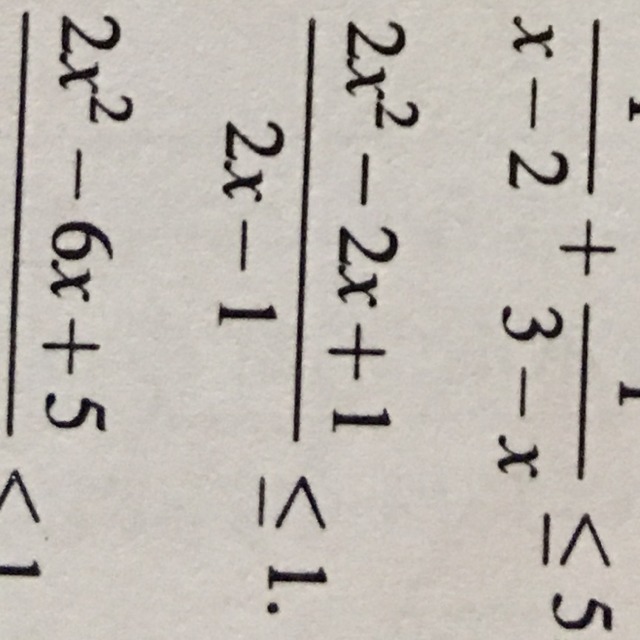 1 1
x – 2 + 3 – x ≤ 5
2x² – 2x + 1
2x – 1 ≤ 1.
2x² – 6x + 5
1